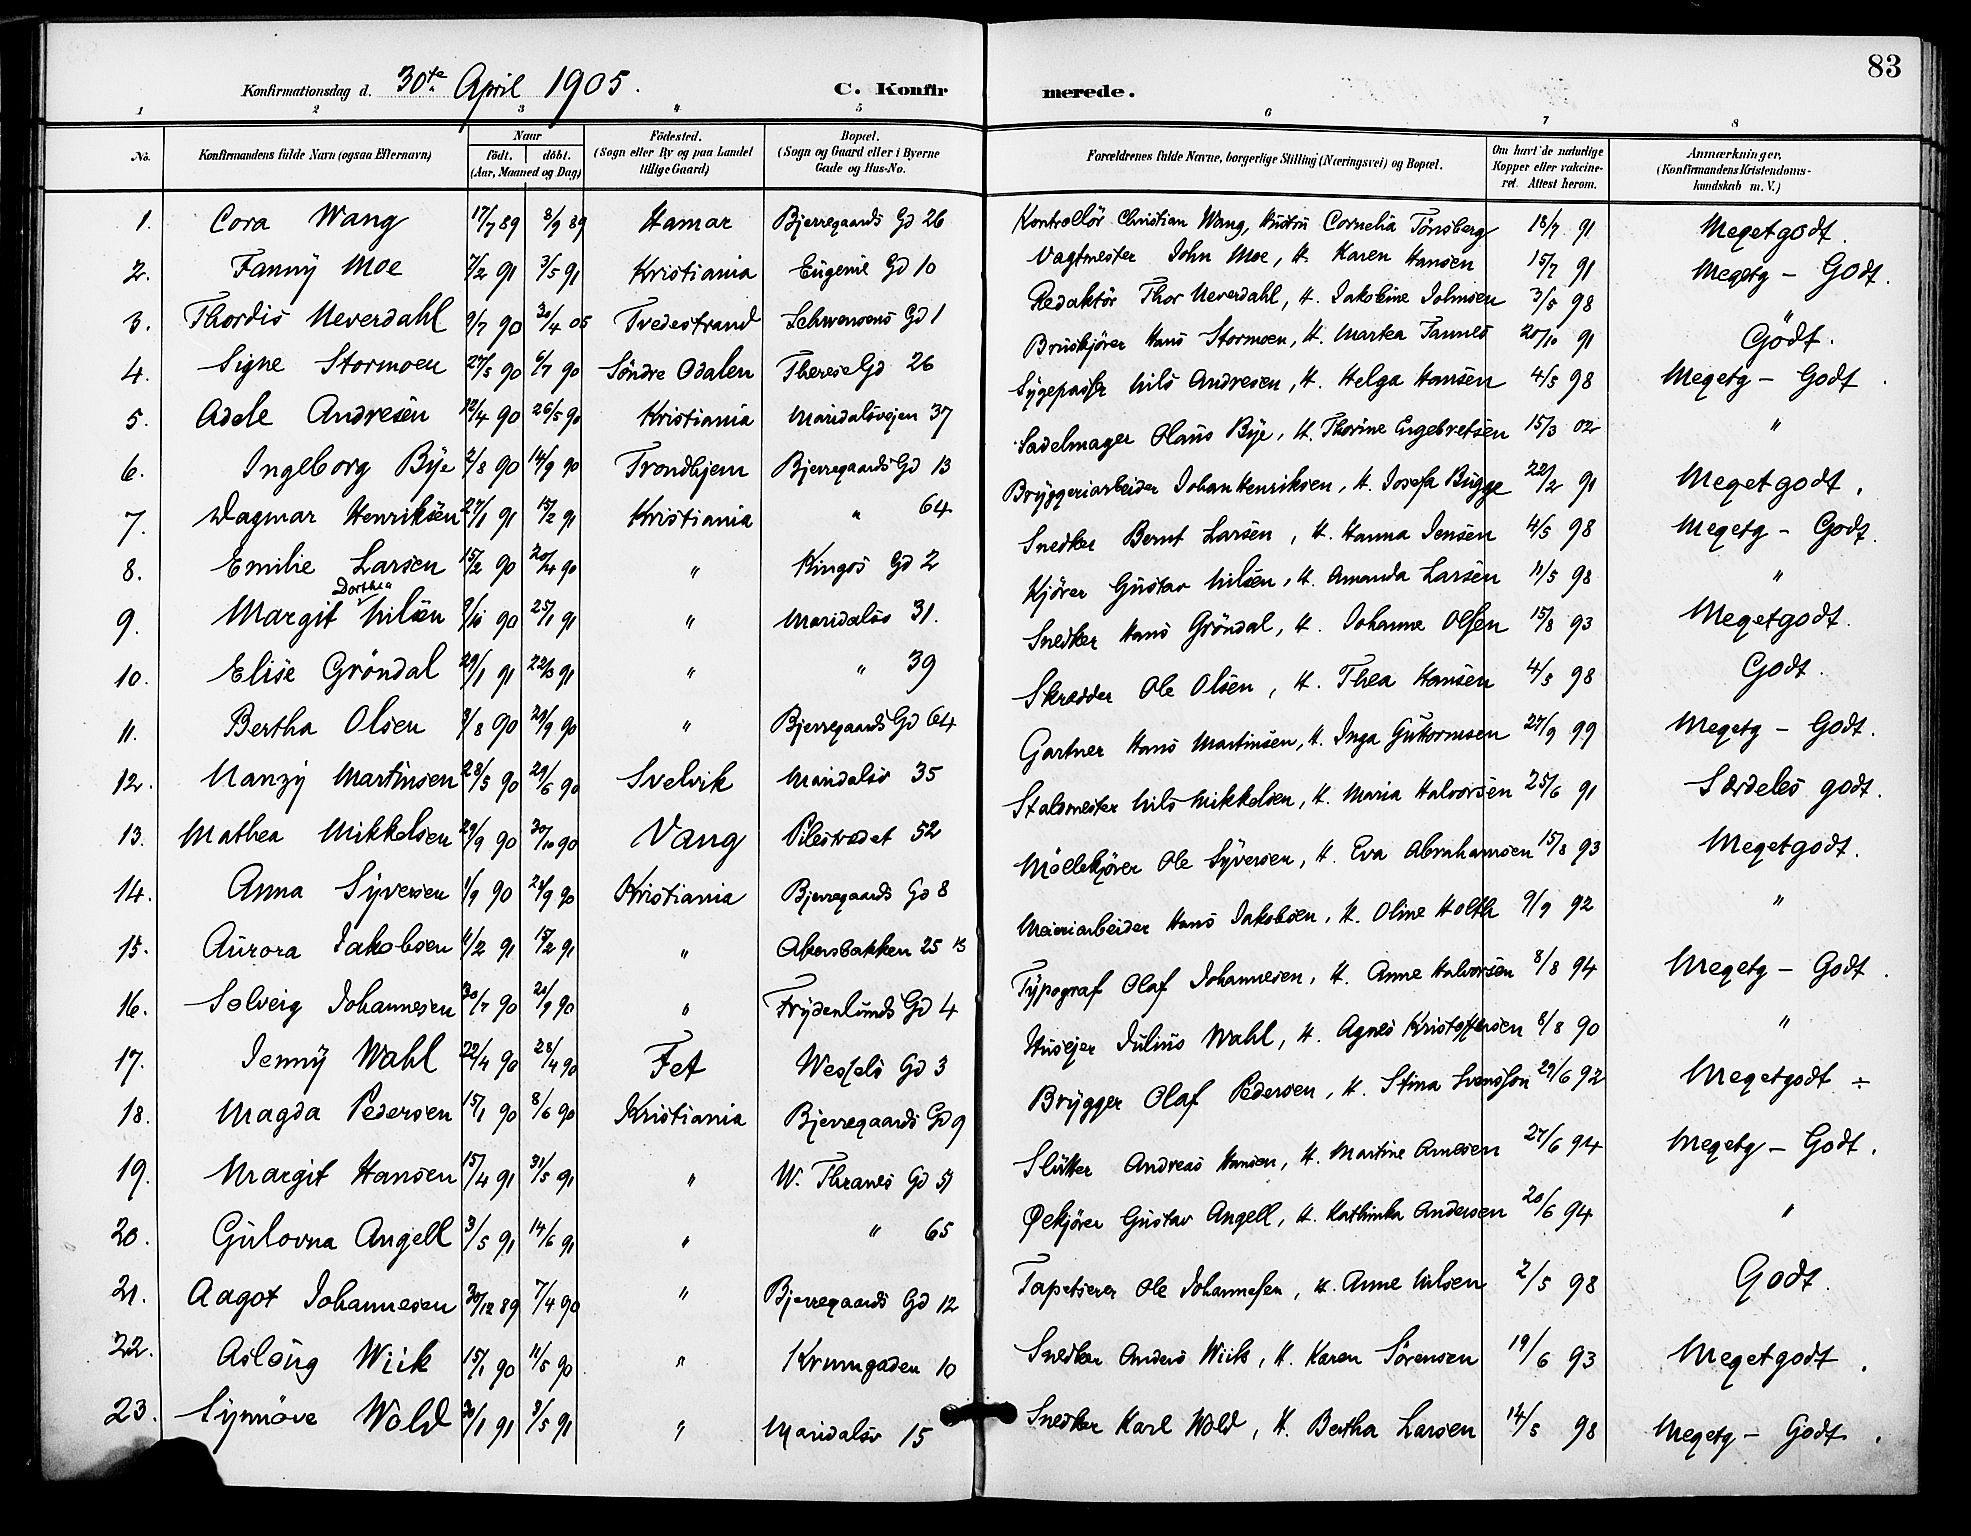 83
Konfirmationsdag d. 30te April 1905. C. Konfirmerede.
1 2 3 4 5 6 7 8
No. Konfirmandens fulde Navn (ogsaa Efternavn) Naar födt. döbt. (Aar, Maaned og Dag) Födested. (Sogn eller By og paa Landet tillige Gaard) Bopæl. (Sogn og Gaard eller i Byerne Gade og Hus-No. Forældrenes fulde Navne, borgerlige Stilling (Næringsvei) og Bopæl. Om havt de naturlige Kopper eller vakcineret. Attest herom. Anmærkninger. (Konfirmandens Kristendomskundskab m. V.)
1. Cora Wang 17/7 89 8/9 89 Hamar Bjerregaards Gd 26 Kontrollör Christian Wang, Hustru Cornelia Tönsberg 18/7 91 Megetgodt.
2. Fanny Moe 7/2 91 3/5 91 Kristiania Eugenie Gd 10 Vagtmester John Moe, H. Karen Hansen 15/7 91 Megetg - Godt.
3. Thordis Neverdahl 9/7 90 30/4 05 Tvedestrand Schwensens Gd 1 Redaktör Thor Neverdahl, H. Jakobine Johnsen 3/5 98 "
4. Signe Stormoen 27/5 90 6/7 90 Söndre Odalen Therese Gd 26 Bruskjörer Hans Stormoen, H. Martea Tannes 20/10 91 Godt.
5. Adele Andresen 12/4 90 26/5 90 Kristiania Maridalsvejen 37 Sygepasser Nils Andresen, H. Helga Hansen 4/5 98 Megetg - Godt.
6. Ingeborg Bye 2/8 90 14/9 90 Trondhjem Bjerregaards Gd 13 Sadelmager Olaus Bye, H. Thorine Engebretsen 15/3 02 "
7. Dagmar Henriksen 27/1 91 15/2 91 Kristiania " 64 Bryggeriarbeider Johan Henriksen, H. Josefa Bugge 22/2 91 Megetgodt.
8. Emilie Larsen 15/2 90 20/4 90 " Kingos Gd 2 Snedker Bernt Larsen, H. Hanna Jensen 4/5 98 Megetg - Godt.
9. Margit Dorthea Nilsen 9/10 90 25/1 91 " Maridalsv 31. Kjörer Gustav Nilsen, H. Amanda Larsen 11/5 98 "
10. Elise Gröndal 29/1 91 22/3 91 " " 39 Snedker Hans Gröndal, H. Johanne Olsen 15/8 93 Megetgodt.
11. Bertha Olsen 3/8 90 29/9 90 " Bjerregaards Gd 64 Skrædder Ole Olsen, H. Thea Hansen 4/5 98 Godt.
12. Nanzy Martinsen 28/5 90 29/6 90 Svelvik Maridalsv 35 Gartner Hans Martinsen, H. Inga Gutormsen 27/9 99 Megetg - Godt.
13. Mathea Mikkelsen 29/9 90 30/10 90 Vang Pilestrædet 52 Staldmester Nils Mikkelsen, H. Maria Halvorsen 25/6 91 Særdeles godt.
14. Anna Syversen 1/9 90 28/9 90 Kristiania Bjerregaards Gd 8 Möllekjörer Ole Syversen, H. Eva Abrahamsen 15/8 93 Megetgodt.
15. Aurora Jakobsen 11/2 91 15/2 91 " Akersbakken 25 B Meieriarbeider Hans Jakobsen, H. Oline Holth 9/9 92 "
16. Solveig Johannesen 30/7 90 21/9 90 " Frydenlunds Gd 4 Typograf Olaf Johannesen, H. Anne Halvorsen 8/8 94 Megetg - Godt.
17. Jenny Wahl 22/4 90 28/4 90 Fet Wessels Gd 3 Huseier Julius Wahl, H. Agnes Kristoffersen 8/8 90 "
18. Magda Pedersen 15/1 90 8/6 90 Kristiania Bjerregaards Gd 9 Brygger Olaf Pedersen, H. Stina Svensson 29/6 92 Megetgodt ÷
19. Margit Hansen 15/4 91 31/5 91 " W. Thranes Gd 51 Slutter Andreas Hansen, H. Martine Arnesen 27/6 94 Megetg - Godt.
20. Gulovna Angell 3/5 91 14/6 91 " " 65 Ølkjörer Gustav Angell, H. Kathinka Andersen 20/6 94 "
21. Aagot Johannesen 30/12 89 7/4 90 " Bjerregaards Gd 12 Tapetserer Ole Johannesen, H. Anne Nilsen 2/5 98 Godt.
22. Aslaug Wiik 15/1 90 11/5 90 " Krumgaden 10 Snedker Anders Wiik, H. Karen Sörensen 19/6 93 Megetgodt.
23. Synnöve Wold 30/1 91 3/5 91 " Maridalsv 15 Snedker Karl Wold, H. Bertha Larsen 14/5 98 Megetg - Godt.